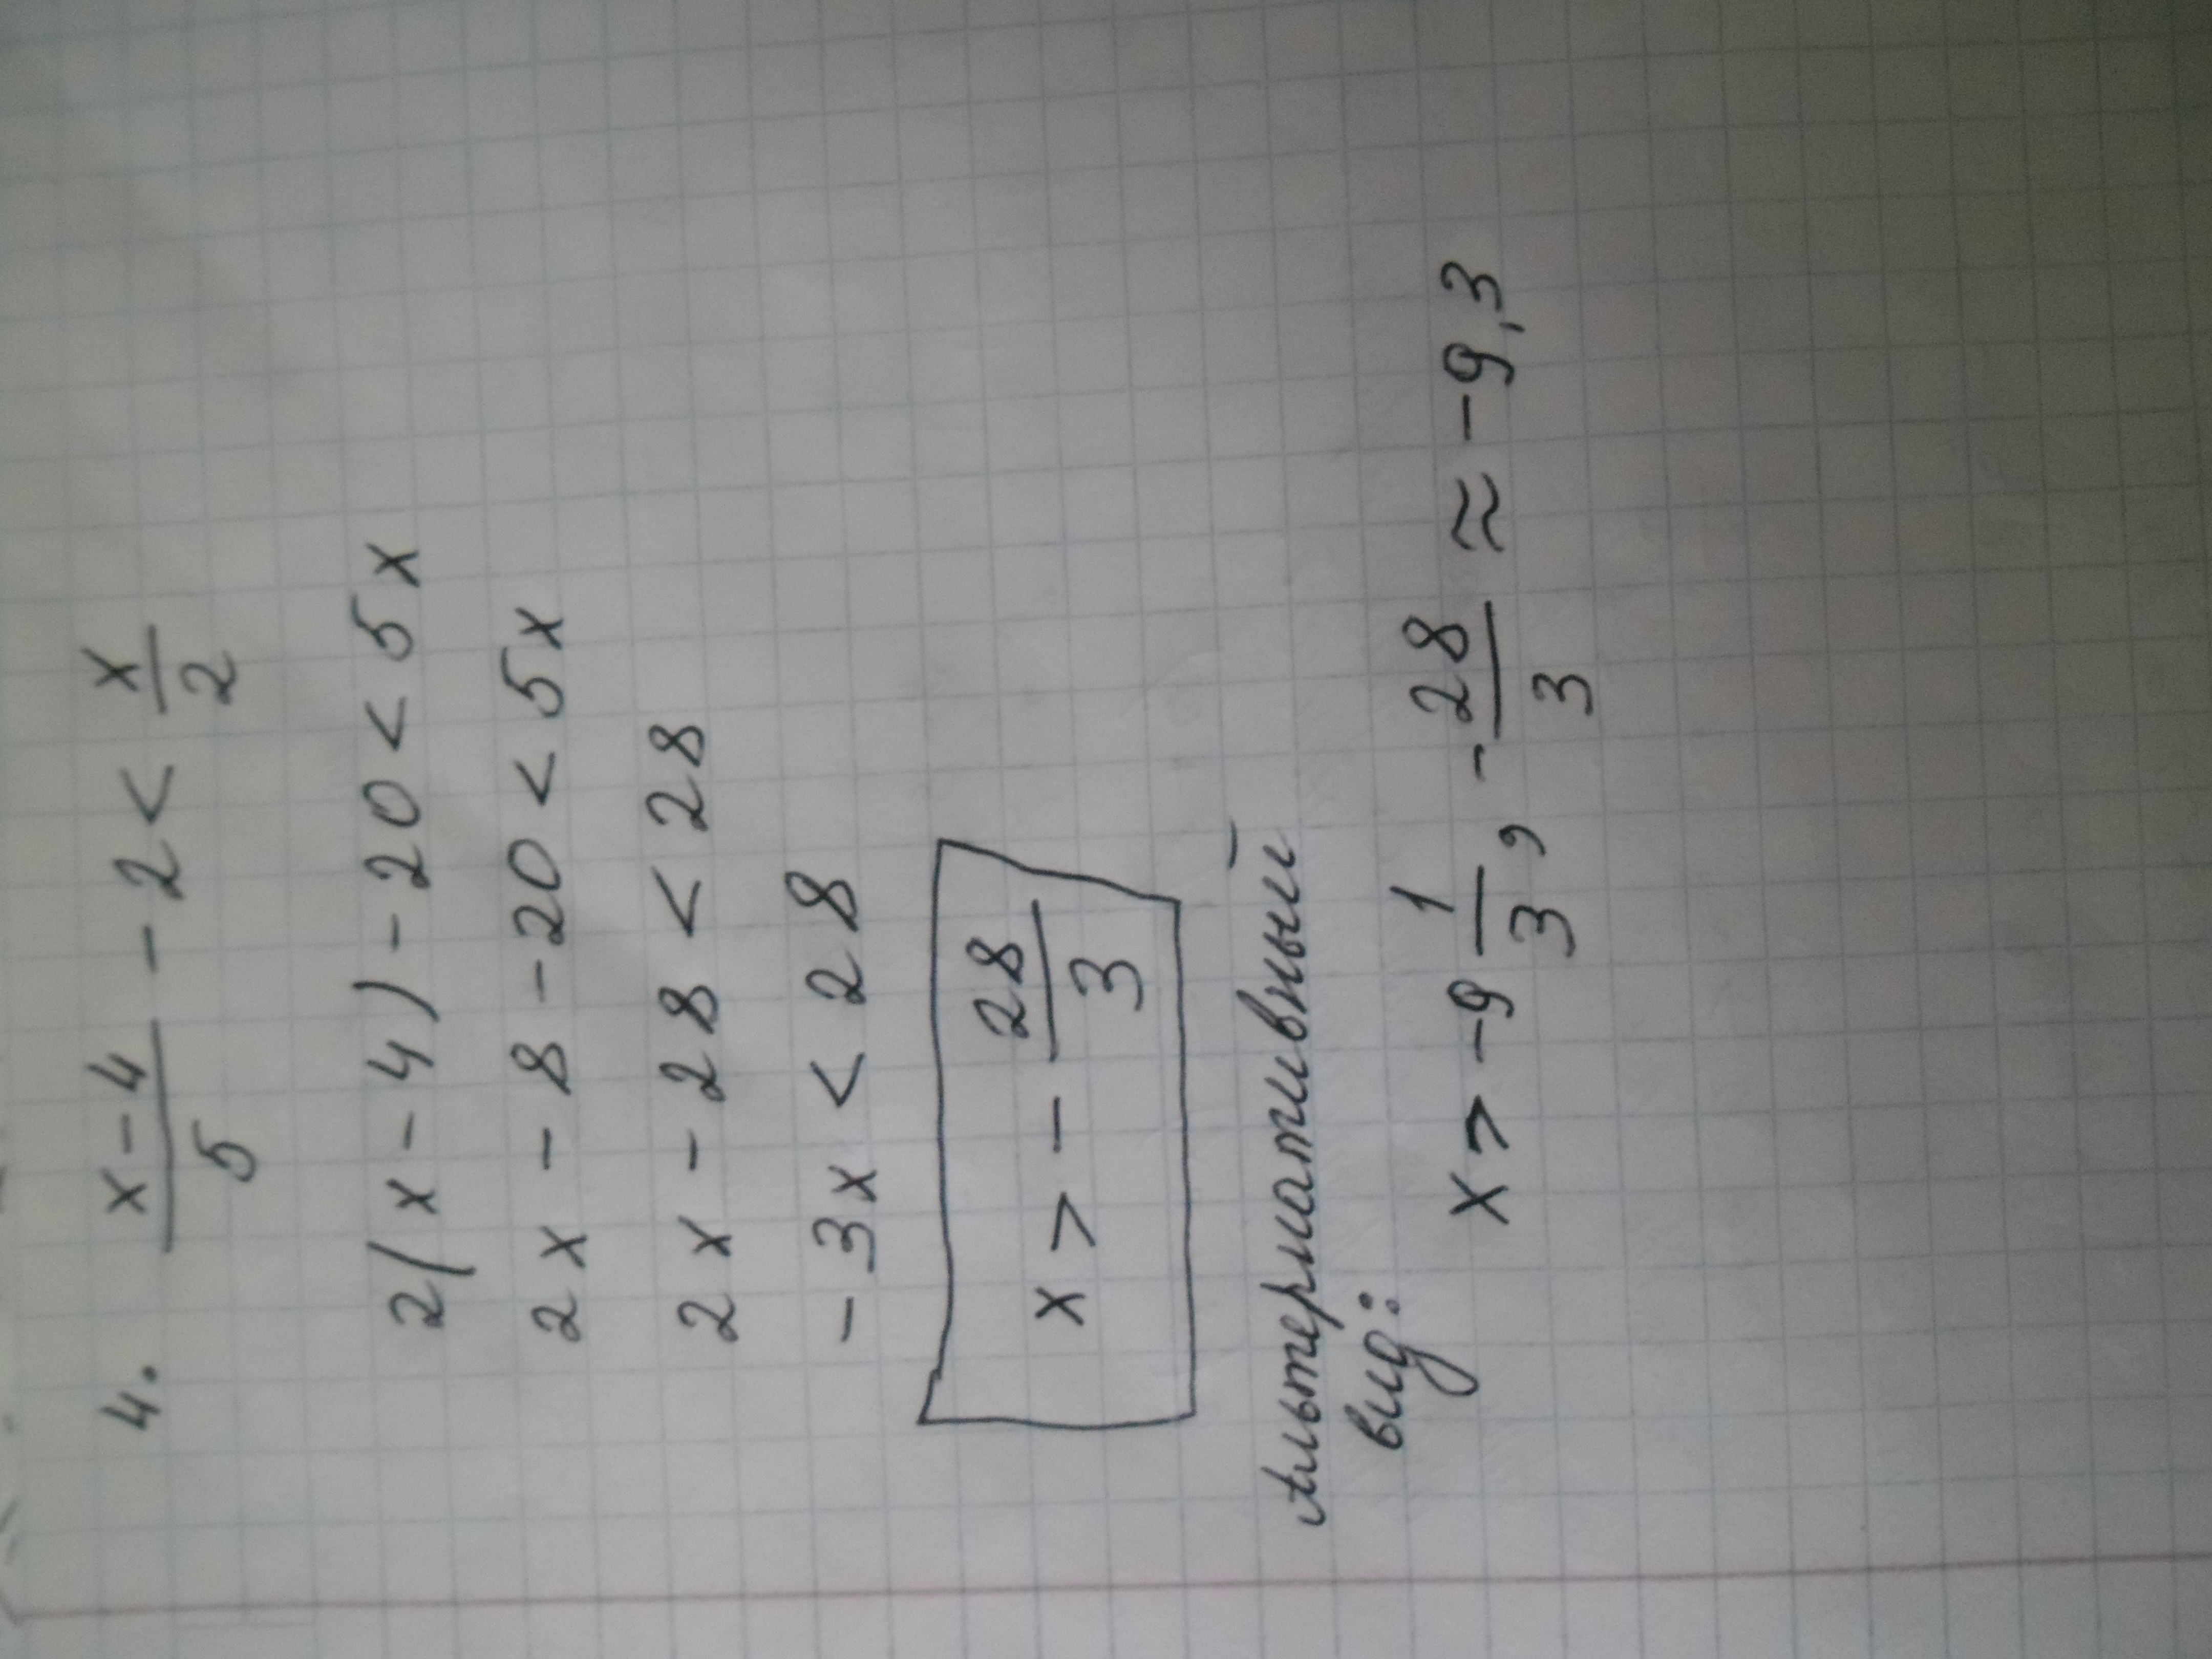 4. \frac{x-4}{5} - 2 < \frac{x}{2}
2(x-4) - 20 < 5x
2x - 8 - 20 < 5x
2x - 28 < 28
-3x < 28
x > -\frac{28}{3}
Альтернативный
вид:
x > -9\frac{1}{3}, -\frac{28}{3} ≈ -9,3